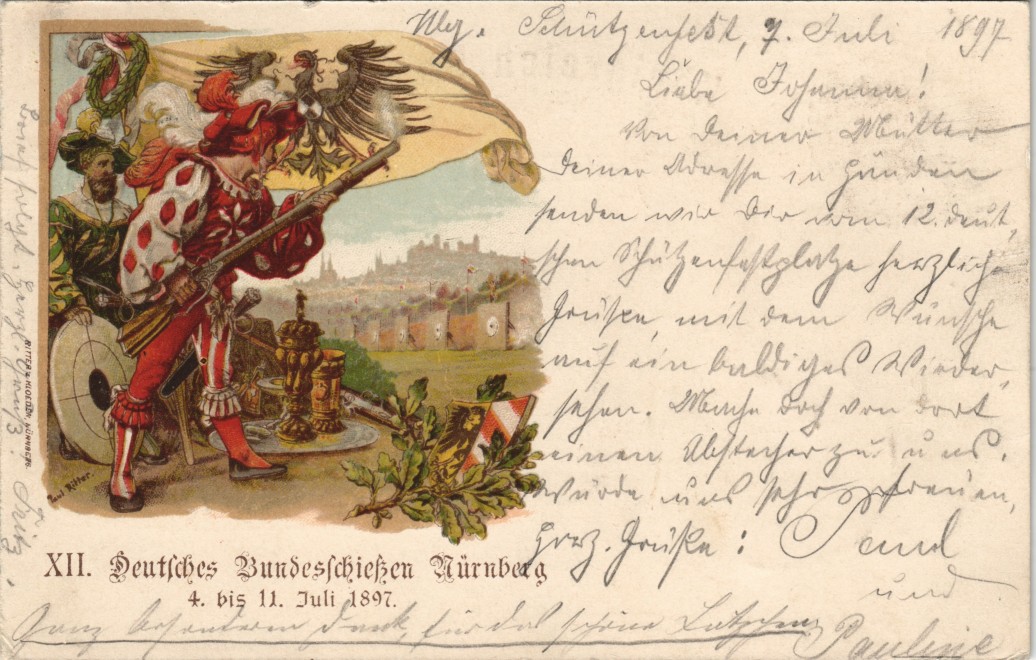 Nbg. Schützenfest, 7. Juli 1897
Liebe Johanna!
Von deiner Mutter
deiner Adresse in Händen
senden wir Dir vom 12. deut,
schen Schützenfestplatze herzliche
Grüße, mit dem Wunsche
auf ein baldiges Wieder,
sehen. Mache doch von dort
einen Abstecher zu uns.
Würde uns sehr freuen,
Herz. Grüße: Paul
und
Pauline
Ganz besonderen Dank, für das schöne
Fritz.
Paul Ritter.
RITTER & KLOEDEN, NÜRNBERG
XII. Deutſches Bundesſchießen Nürnberg
4. bis 11. Juli 1897.